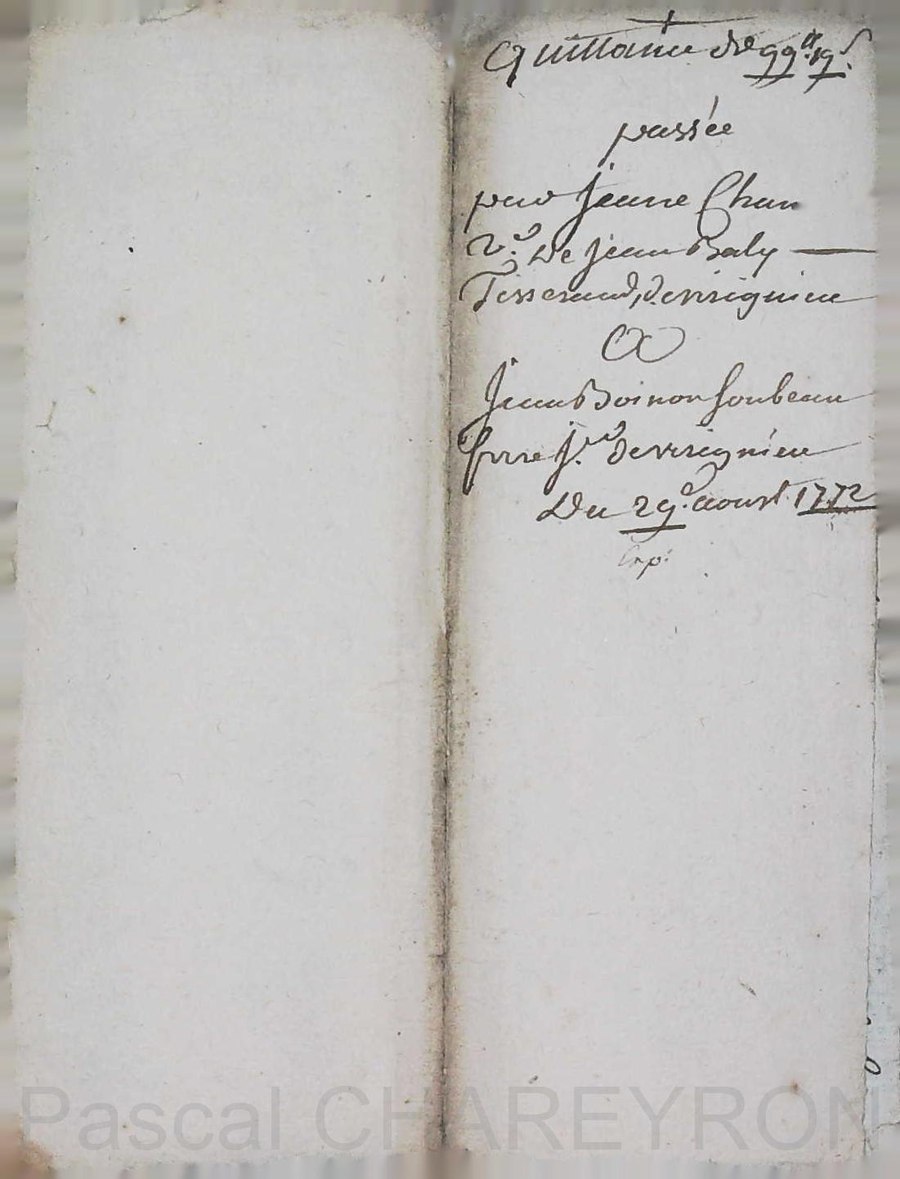 Quittance de 99ll. 19s.
passée
par Jeanne Chan
Ve. De Jean Baly
Tisserand, de virignieu
A
Jean Boinon son beau
frere Jr. de virignieu
Du 29e. aoust 1772
Exp:
Pascal CHAREYRON